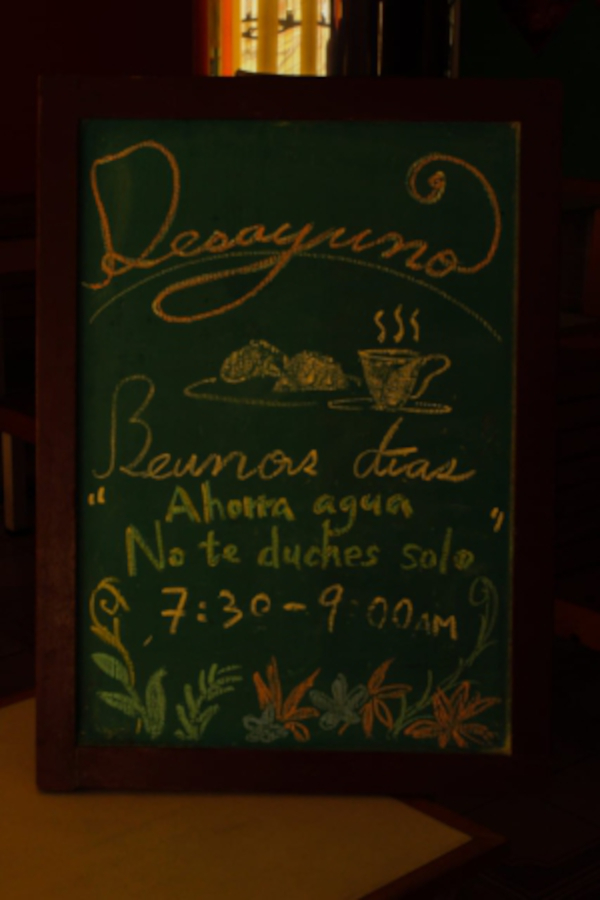 Desayuno
Beunos días
"Ahorra agua
No te duches solo"
7:30-9:00AM